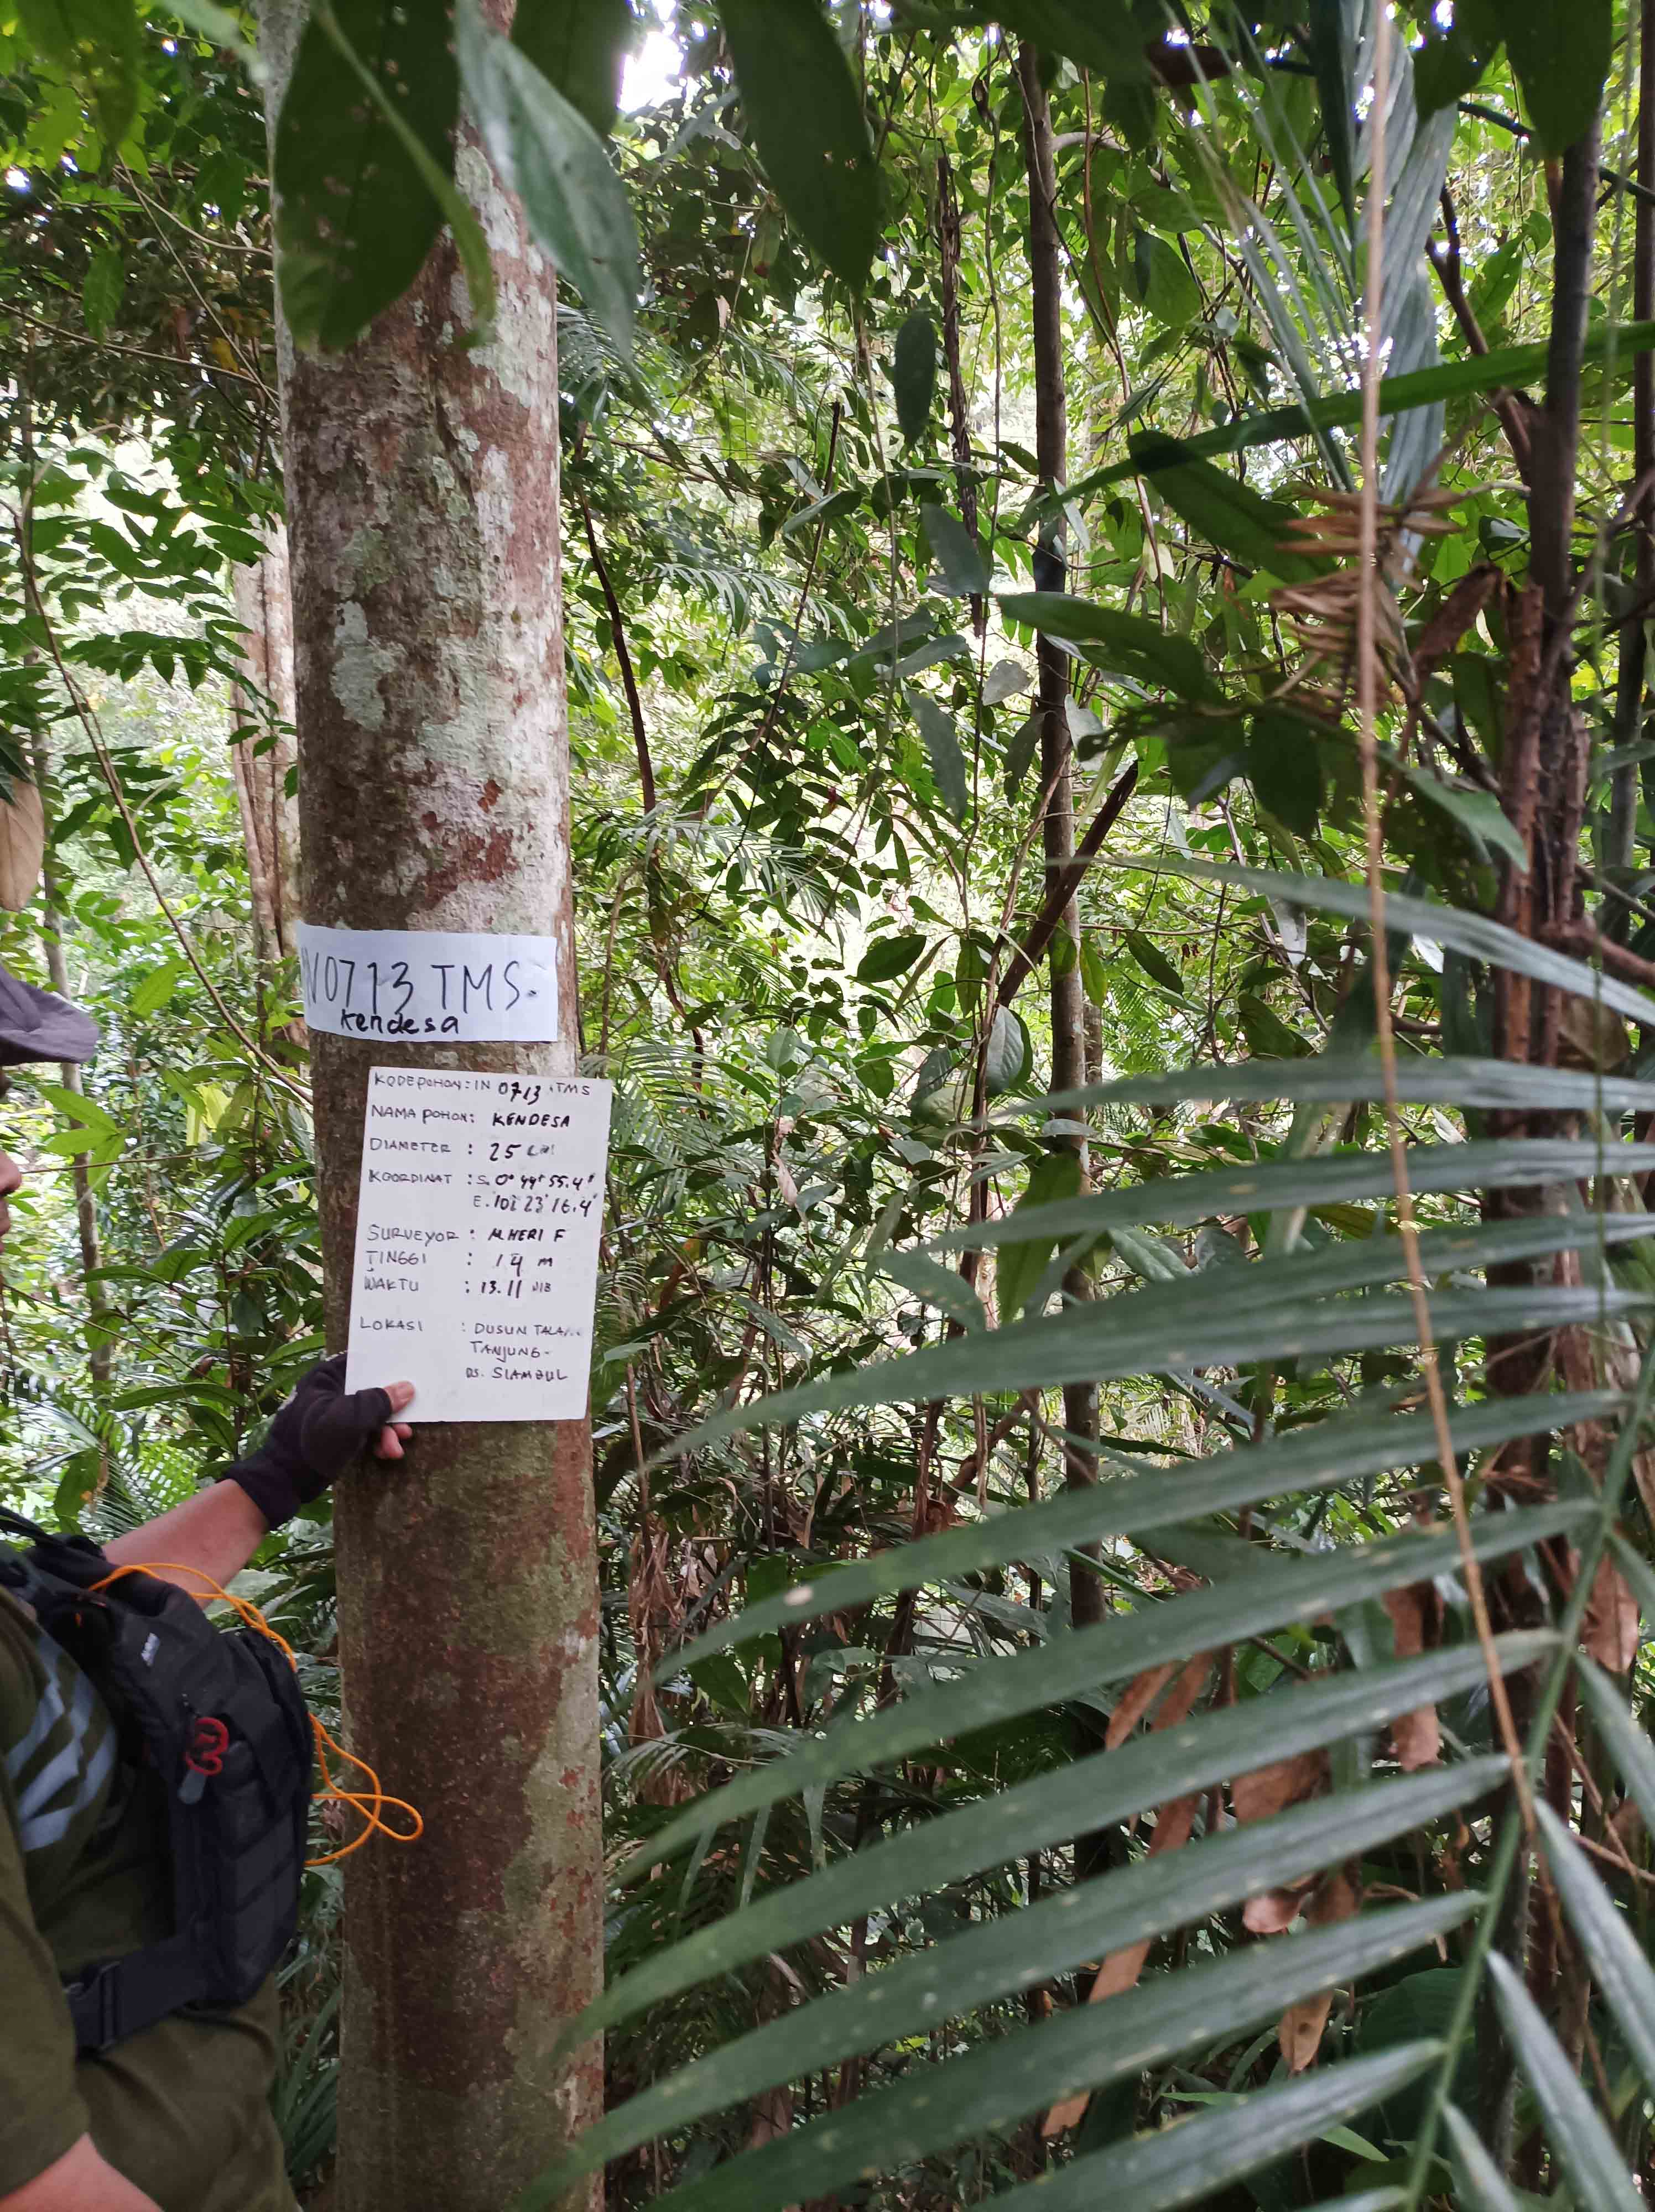 N0713 TMS.
Kendesa
KODE POHON : IN 0713 .TMS
NAMA POHON : KENDESA
DIAMETER : 25 cm
KOORDINAT : S. 0° 44' 55.4"
E. 101 23' 16.4"
SURVEYOR : M.HERI F
TINGGI : 14 m
WAKTU : 13.11 WIB
LOKASI : DUSUN TALANG
TANJUNG-
DS. SIAMBUL